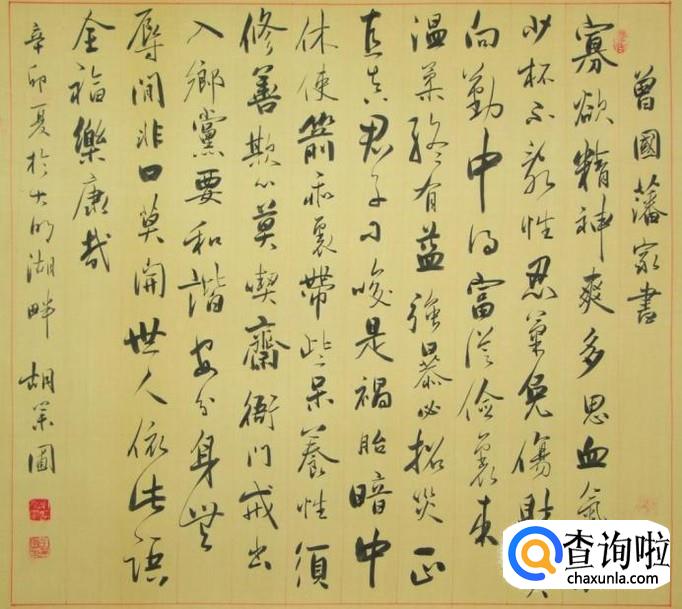 曾國藩家書
寡欲精神爽多思血氣
少杯不亂性忍氣免傷財
向勤中得富從儉裏來
溫柔終有益強暴必招災正
直真君子刁唆是禍胎暗中
休使箭乖裏帶些呆養性須
修善欺心莫喫齋衙門戒出
入鄉黨要和諧安分身無
辱閒非口莫開世人依此語
全福樂康哉
辛卯夏於大明湖畔 胡圖
查询啦
chaxunla.com